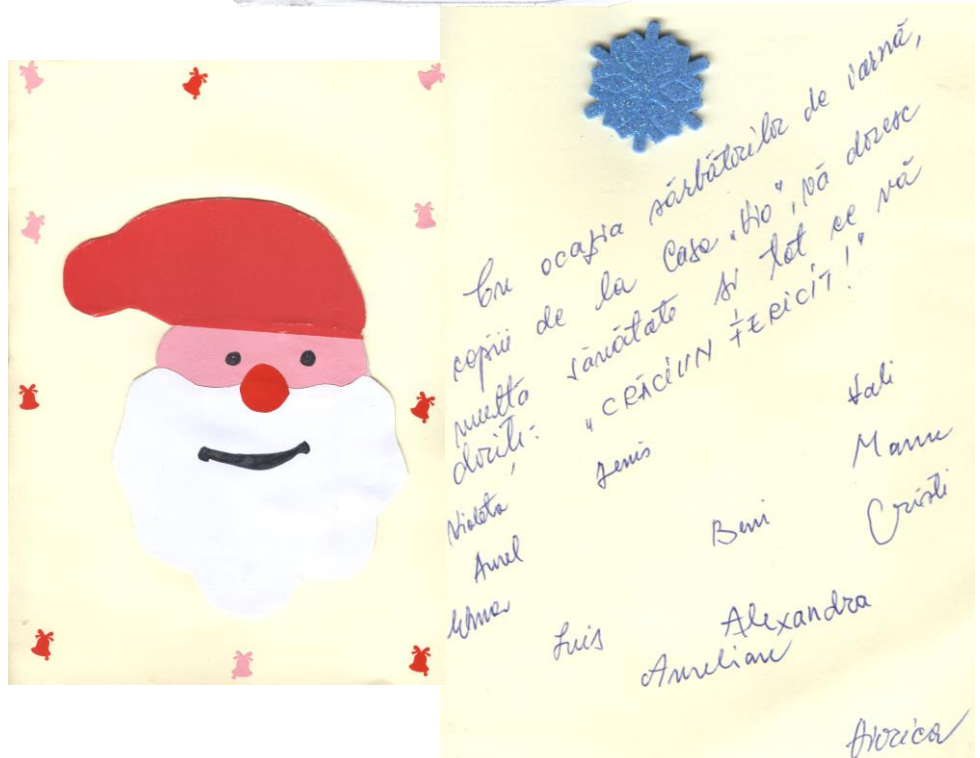 Cu ocazia sărbătorilor de iarnă,
copiii de la Casa „Bio”, vă doresc
multă sănătate și tot ce vă
doriți: „CRĂCIUN FERICIT!”
Violeta Denis Vali
Aurel Beni Manu
Cristi
Luis Alexandra
Aurelian
Viorica